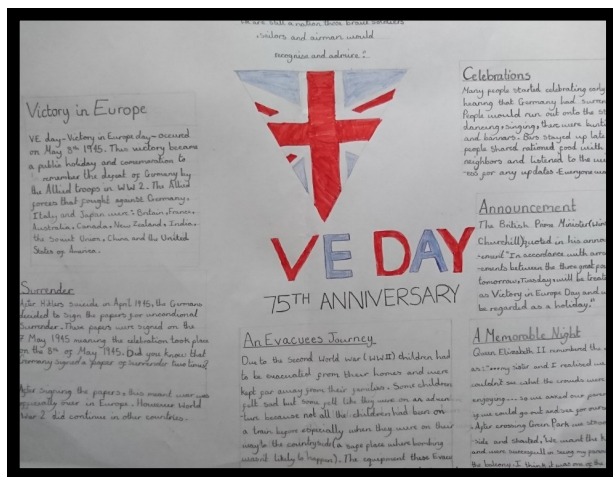 we are still a nation those brave soldiers
, sailors and airmen would
recognise and admire".
Victory in Europe
VE day - Victory in Europe day - occured
on May 8th 1945. This victory became
a public holiday and
remember the defeat of Germany by
the Allied troops in WW2. The Allied
forces that fought against Germany,
Italy and Japan were: Britain, France,
Australia, Canada, New Zealand, India,
the Soviet Union, China and the United
States of America.
Surrender
After Hitlers suicide in April 1945, the Germans
decided to sign the papers for
Surrender. These papers were signed on the
7 May 1945 meaning the celebration took place
on the 8th of May 1945. Did you know that
Germany signed a paper of surrender two times
After signing the papers, this meant war was
officially over in Europe. However World
War 2 did continue in other countries.
VE DAY
75TH ANNIVERSARY
An Evacuees Journey
Due to the Second World War (WWII) children had
to be evacuated from their homes and were
kept far away from their families. Some children
felt sad but some felt like they were on an adven
ture because not all the children had been on
a train before especially when they were on their
way to the countryside (a safe place where bombing
wasn't likely to happen). The equipment these Evac
Celebrations
Many people started celebrating early
hearing that Germany had surre
People would run out onto the st
dancing, singing, there were bunt
and banners. stayed up late
people shared rationed food with
neighbors and listened to the
for any updates. Everyone wa
Announcement
The British Prime Minister (Win
Churchill) quoted in his annou
-ement "In accordance with arra
ements between the three great po
tomorrow, Tuesday, will be treate
as Victory in Europe Day and w
be regarded as a holiday."
A Memorable Night
Queen Elizabeth II remembered the
as: "...my sister and I realised we
couldn't see what the crowds were
enjoying... so we asked our paren
if we could go out and see for ours
After crossing Green Park we stood
side and shouted, 'We want the k
and were successful in seeing my paren
the balcony. I think it was one of the